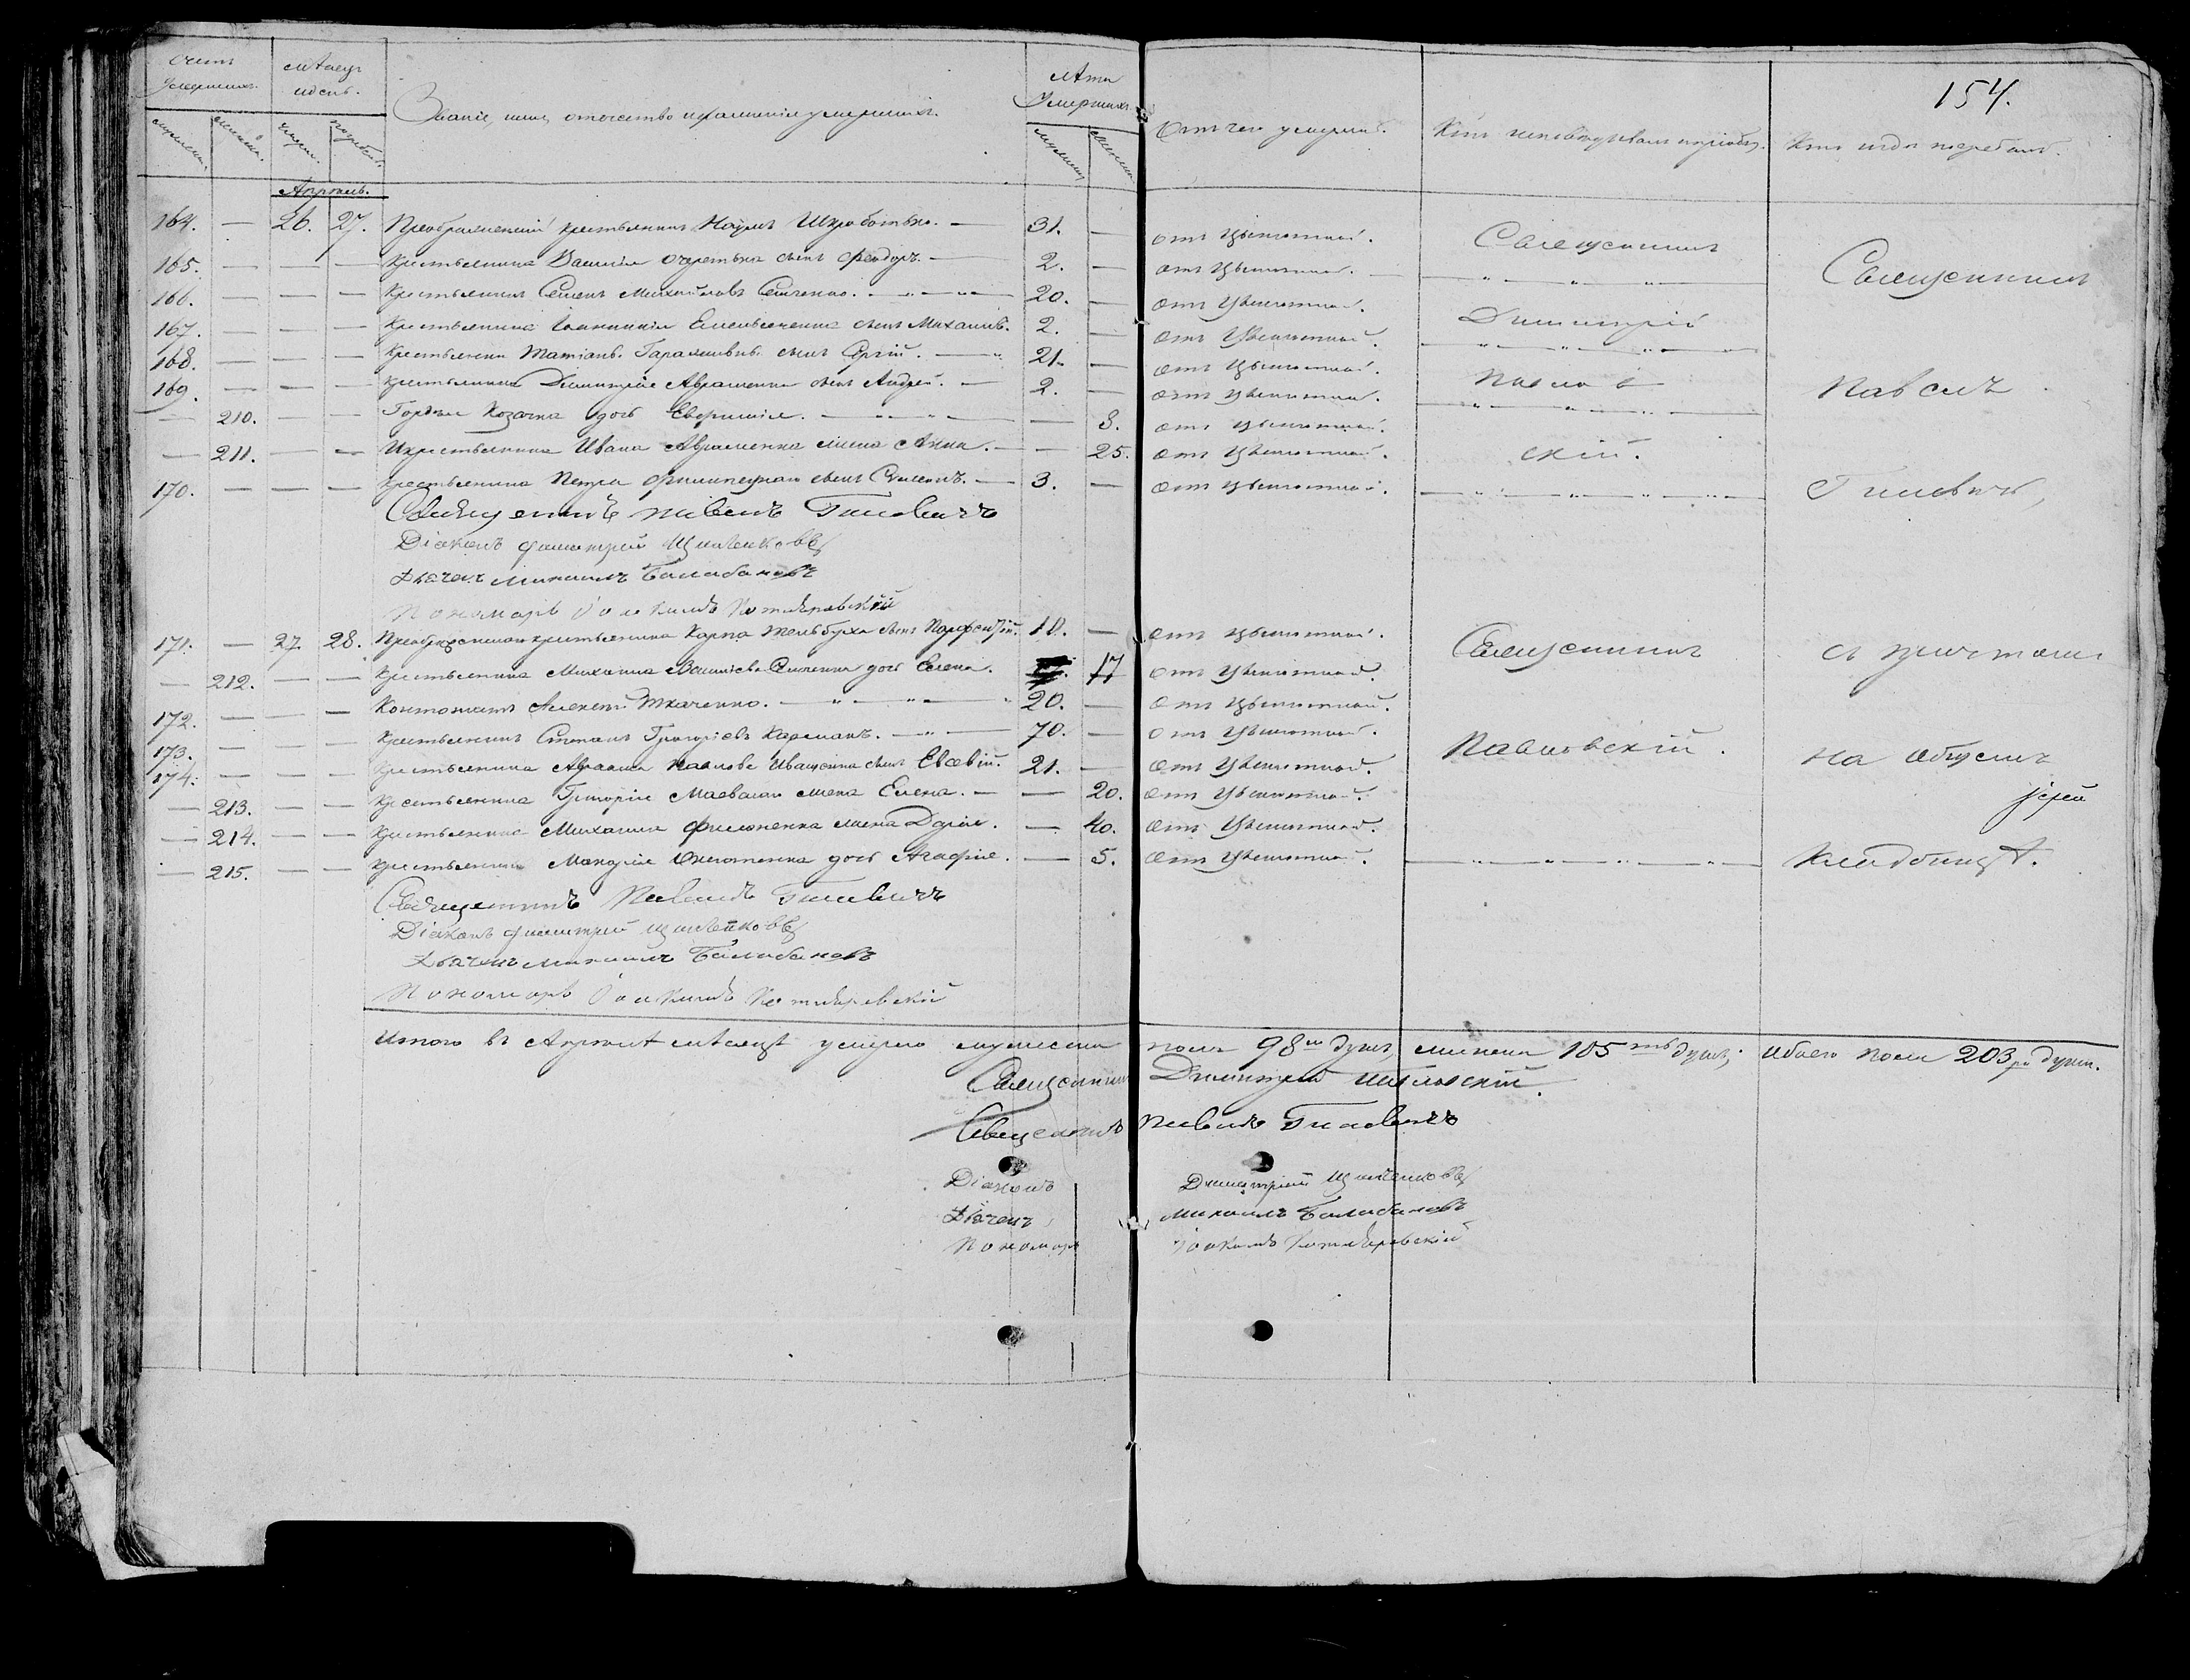 154.
Счетъ умершихъ.
Мѣсяцъ и день.
Званіе, имя, отчество и фамилія умершихъ.
Лѣта Умершихъ.
Отъ чего умеръ.
Кто исповѣдывалъ и пріобщ.
Кто и гдѣ погребалъ.
мужеска. женска. смерти. погребен. мужеска женска
Апрѣль.
164. — 26. 27. Преображенскій крестьянинъ Наумъ Шкроботько. — 31. — отъ цынготной. Священникъ Священникъ
165. — — — Крестьянина Василія Очеретька сынъ Феодоръ. — 2. — отъ цынготной.
166. — — — Крестьянинъ Семенъ Михайловъ Семченко. — 20. — отъ цынготной. Димитрій
167. — — — Крестьянина Іоанникія Емельяненка сынъ Михаилъ. 2. — отъ цынготной.
168. — — — Крестьянки Татіаны сынъ Сергій. — 21. — отъ цынготной.
169. — — — Крестьянина Димитрія Авраменка сынъ Андрей. — 2. — отъ цынготной. Павлов Павелъ
— 210. — — Гордѣя Козачка дочь Евфимія. — — 8. отъ цынготной.
— 211. — — Крестьянина Ивана Авраменка жена Анна. — — 25. отъ цынготной. скій.
170. — — — Крестьянина Петра сынъ Симеонъ. — 3. — отъ цынготной. Гиневичъ,
Священникъ Павелъ Гиневичъ
Діаконъ Димитрій
Дьячекъ Михаилъ Балабановъ
Пономарь Іоакимъ Котляревскій
171. — 27. 28. крестьянина Карпа сынъ 18. — отъ цынготной. Священникъ съ причтомъ
— 212. — — Крестьянина Михаила Семченка дочь Елена. 17 отъ цынготной.
172. — — — Алексѣй Ткаченко. — 20. — отъ цынготной.
173. — — — Крестьянинъ Степанъ Григоріевъ — 70. — отъ цынготной. Павловскій. на общемъ
174. — — — Крестьянина Авраама Павлова Иващенка сынъ Евсевій. 21. — отъ цынготной.
— 213. — — Крестьянина Григорія жена Елена. — — 20. отъ цынготной.
— 214. — — Крестьянина Михаила Филоненка жена Дарія. — 40. отъ цынготной.
— 215. — — Крестьянина дочь Агафія. — 5. отъ цынготной. кладбищѣ.
Священникъ Павелъ Гиневичъ
Діаконъ Димитрій
Дьячекъ Михаилъ Балабановъ
Пономарь Іоакимъ Котляревскій
Итого въ Апрѣлѣ мѣсяцѣ умерло мужеска пола 98 душъ, женска 105 душъ; обоего пола 203 душ.
Священникъ Димитрій Павловскій.
Священникъ Павелъ Гиневичъ
Діаконъ Димитрій
Дьячекъ Михаилъ Балабановъ
Пономарь Іоакимъ Котляревскій